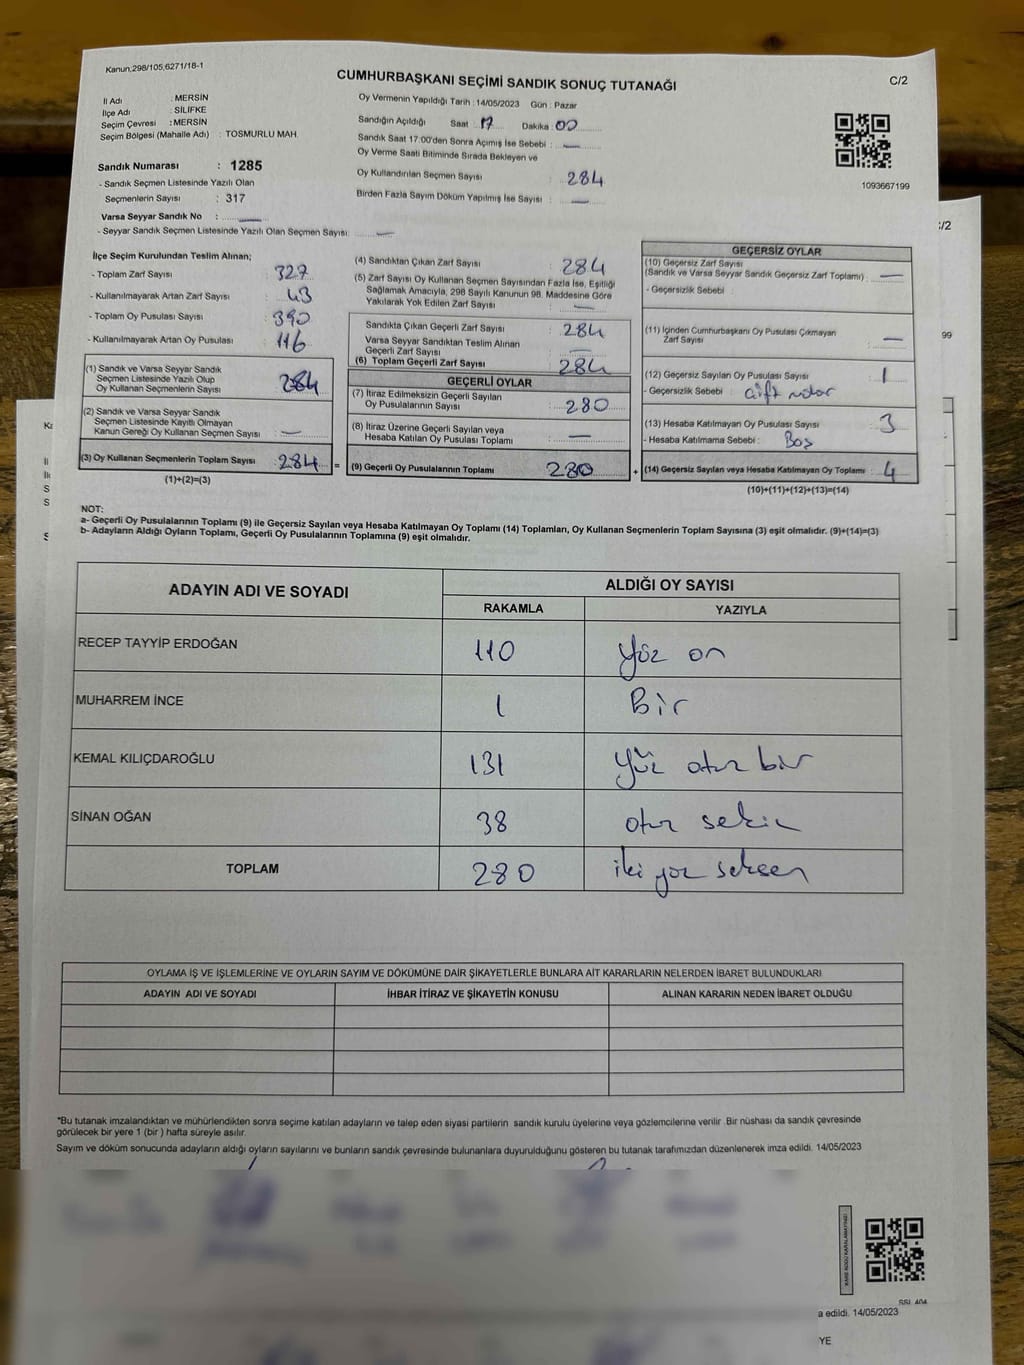 Kanun,298/105,6271/18-1
CUMHURBAŞKANI SEÇİMİ SANDIK SONUÇ TUTANAĞI
C/2
İl Adı : MERSİN
İlçe Adı : SİLİFKE
Seçim Çevresi : MERSİN
Seçim Bölgesi (Mahalle Adı) : TOSMURLU MAH.
Sandık Numarası : 1285
- Sandık Seçmen Listesinde Yazılı Olan
Seçmenlerin Sayısı : 317
Varsa Seyyar Sandık No : —
- Seyyar Sandık Seçmen Listesinde Yazılı Olan Seçmen Sayısı: —
Oy Vermenin Yapıldığı Tarih : 14/05/2023 Gün : Pazar
Sandığın Açıldığı Saat 17 Dakika 00
Sandık Saat 17:00'den Sonra Açımış İse Sebebi : —
Oy Verme Saati Bitiminde Sırada Bekleyen ve
Oy Kullandırılan Seçmen Sayısı : 284
Birden Fazla Sayım Döküm Yapılmış İse Sayısı : —
1093667199
:/2
99
İlçe Seçim Kurulundan Teslim Alınan;
- Toplam Zarf Sayısı : 327
- Kullanılmayarak Artan Zarf Sayısı : 43
- Toplam Oy Pusulası Sayısı : 390
- Kullanılmayarak Artan Oy Pusulası : 116
(1) Sandık ve Varsa Seyyar Sandık
Seçmen Listesinde Yazılı Olup
Oy Kullanan Seçmenlerin Sayısı : 284
(2) Sandık ve Varsa Seyyar Sandık
Seçmen Listesinde Kayıtlı Olmayan
Kanun Gereği Oy Kullanan Seçmen Sayısı : —
(3) Oy Kullanan Seçmenlerin Toplam Sayısı : 284 =
(1)+(2)=(3)
(4) Sandıktan Çıkan Zarf Sayısı : 284
(5) Zarf Sayısı Oy Kullanan Seçmen Sayısından Fazla İse, Eşitliği
Sağlamak Amacıyla, 298 Sayılı Kanunun 98. Maddesine Göre
Yakılarak Yok Edilen Zarf Sayısı : —
Sandıkta Çıkan Geçerli Zarf Sayısı : 284
Varsa Seyyar Sandıktan Teslim Alınan
Geçerli Zarf Sayısı : —
(6) Toplam Geçerli Zarf Sayısı : 284
GEÇERLİ OYLAR
(7) İtiraz Edilmeksizin Geçerli Sayılan
Oy Pusulalarının Sayısı : 280
(8) İtiraz Üzerine Geçerli Sayılan veya
Hesaba Katılan Oy Pusulası Toplamı : —
(9) Geçerli Oy Pusulalarının Toplamı 280 +
GEÇERSİZ OYLAR
(10) Geçersiz Zarf Sayısı
(Sandık ve Varsa Seyyar Sandık Geçersiz Zarf Toplamı) : —
- Geçersizlik Sebebi :
(11) İçinden Cumhurbaşkanı Oy Pusulası Çıkmayan
Zarf Sayısı : —
(12) Geçersiz Sayılan Oy Pusulası Sayısı : 1
- Geçersizlik Sebebi : çift
(13) Hesaba Katılmayan Oy Pusulası Sayısı : 3
- Hesaba Katılmama Sebebi : Boş
(14) Geçersiz Sayılan veya Hesaba Katılmayan Oy Toplamı : 4
(10)+(11)+(12)+(13)=(14)
NOT:
a- Geçerli Oy Pusulalarının Toplamı (9) ile Geçersiz Sayılan veya Hesaba Katılmayan Oy Toplamı (14) Toplamları, Oy Kullanan Seçmenlerin Toplam Sayısına (3) eşit olmalıdır. (9)+(14)=(3)
b- Adayların Aldığı Oyların Toplamı, Geçerli Oy Pusulalarının Toplamına (9) eşit olmalıdır.
ADAYIN ADI VE SOYADI ALDIĞI OY SAYISI
RAKAMLA YAZIYLA
RECEP TAYYİP ERDOĞAN 110 Yüz on
MUHARREM İNCE 1 Bir
KEMAL KILIÇDAROĞLU 131 Yüz otuz bir
SİNAN OĞAN 38 otuz sekiz
TOPLAM 280 iki yüz seksen
OYLAMA İŞ VE İŞLEMLERİNE VE OYLARIN SAYIM VE DÖKÜMÜNE DAİR ŞİKAYETLERLE BUNLARA AİT KARARLARIN NELERDEN İBARET BULUNDUKLARI
ADAYIN ADI VE SOYADI İHBAR İTİRAZ VE ŞİKAYETİN KONUSU ALINAN KARARIN NEDEN İBARET OLDUĞU
*Bu tutanak imzalandıktan ve mühürlendikten sonra seçime katılan adayların ve talep eden siyasi partilerin sandık kurulu üyelerine veya gözlemcilerine verilir. Bir nüshası da sandık çevresinde
görülecek bir yere 1 (bir ) hafta süreyle asılır.
Sayım ve döküm sonucunda adayların aldığı oyların sayılarını ve bunların sandık çevresinde bulunanlara duyurulduğunu gösteren bu tutanak tarafımızdan düzenlenerek imza edildi. 14/05/2023
a edildi. 14/05/2023
YE